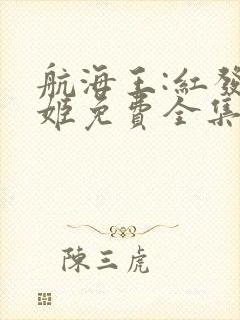 航海王:紅發
姬免費全集
陳三虎